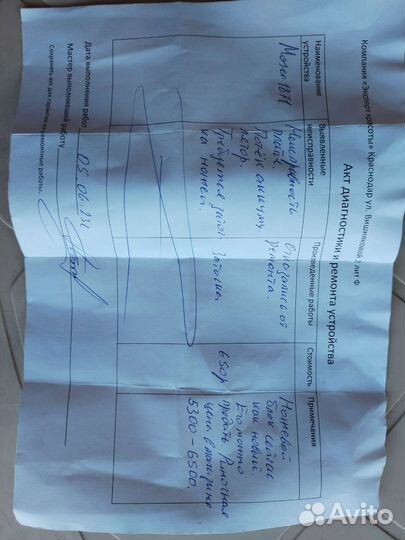 Компания «Эксперт красоты» Краснодар ул. Вишняковой 2 лит Ф
Акт диагностики и ремонта устройства
Наименование устройства
Выявленные неисправности
Произведенные работы
Стоимость
Примечания
Moser 1871
Неисправность
Потёк аккуму
лятор.
Требуется заточ
ка ножей.
Отказались от
ремонта.
Заточка
650р
Ножевой
блок сейчас
как новый.
Его можно
продать Рыночная
цена
5300-6500.
Дата выполнения работ 05.06.21
Мастер выполнявший работу
Сохранять акт для гарантии на ремонтные работы.
Avito